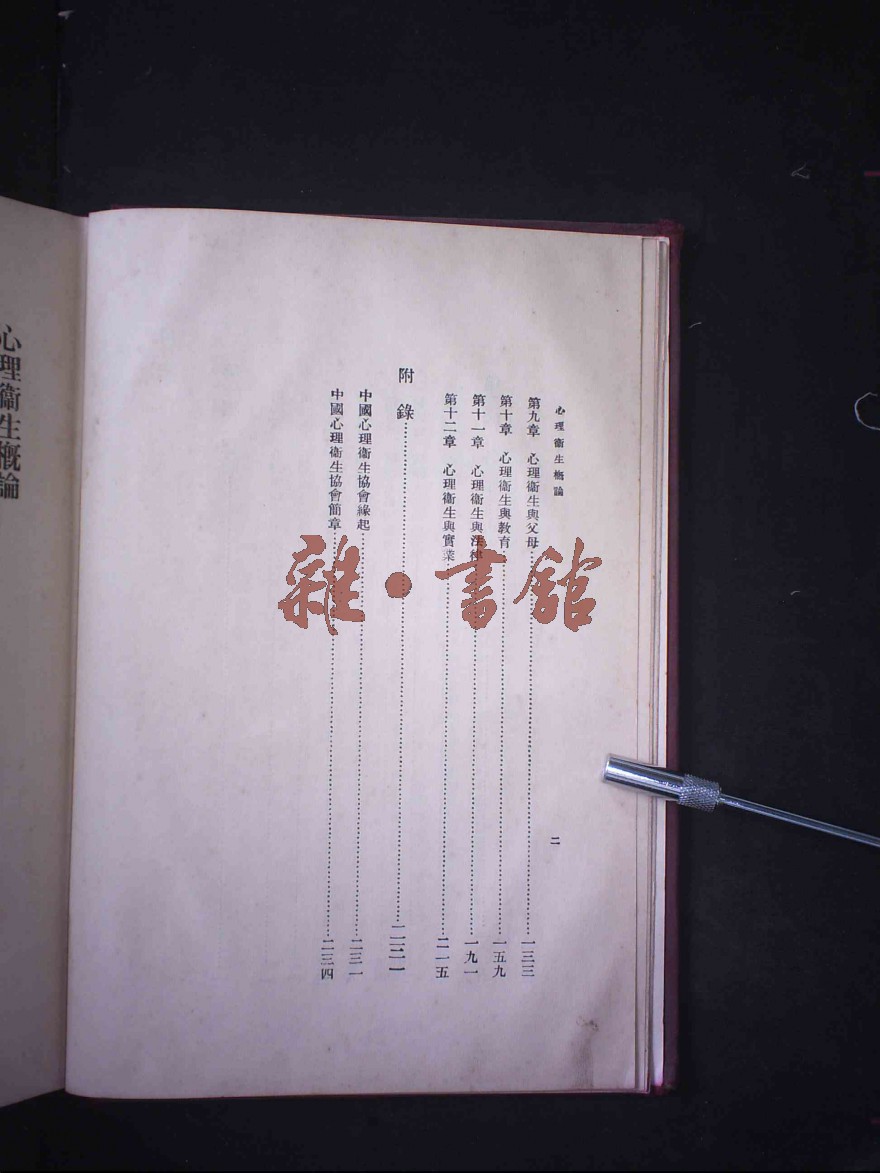 心理衞生概論
二
第九章　心理衞生與父母……一三三
第十章　心理衞生與教育……一五九
第十一章　心理衞生與法律……一九一
第十二章　心理衞生與實業……二一五
附錄……二三一
中國心理衞生協會緣起……二三一
中國心理衞生協會簡章……二三四
心理衞生概論
雜·書舘